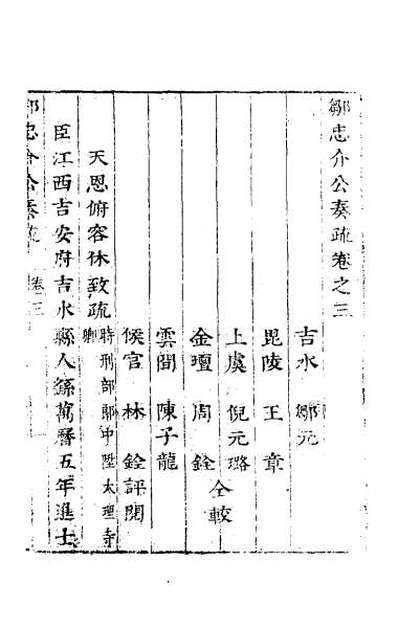 鄒忠介公奏疏卷之三
吉水 鄒元
毘陵 王章
上虞 倪元璐
金壇 周銓
仝較
雲間 陳子龍
侯官 林銓評閱
天恩俯容休致疏 時刑部郎中陞太理寺卿
臣江西吉安府吉水縣人繇萬曆五年進士
鄒忠介公奏疏 卷三